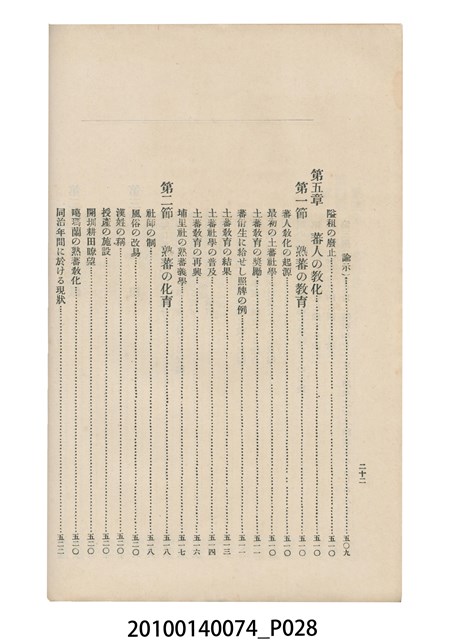 諭示…五〇九
隘租の廢止…五一〇
第五章 蕃人の教化…五一〇
第一節 熟蕃の教育…五一〇
蕃人教化の起源…五一〇
最初の土蕃社學…五一〇
土蕃教育の奬勵…五一一
蕃佾生に給せし照牌の例…五一一
土蕃教育の結果…五一三
土蕃社學の普及…五一四
土蕃教育の再興…五一六
埔里社の熟蕃義學…五一七
第二節 熟蕃の化育…五一八
社師の制…五一八
風俗の改易…五二〇
漢姓の稱…五二〇
授產の施設…五二〇
開圳耕田瞭望…五二〇
噶瑪蘭の熟蕃教化…五二〇
同治年間に於ける現狀…五二二
二十二
20100140074_P028